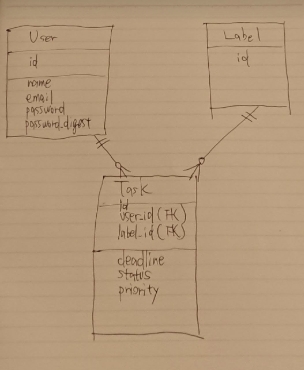 User
id
name
email
password
password_digest
Label
id
Task
id
user_id (FK)
label_id (FK)
deadline
status
priority